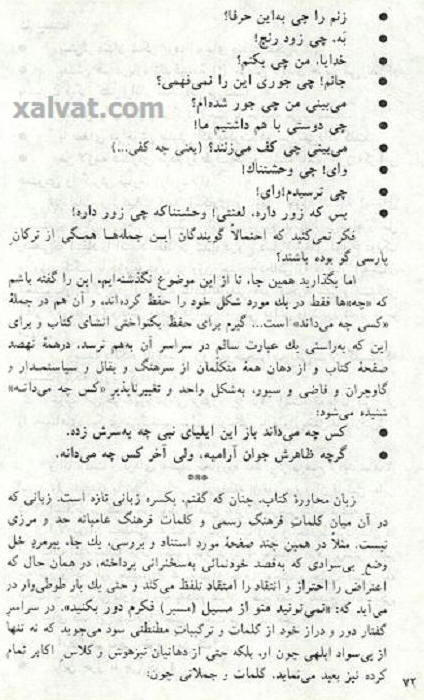 ● زنم را چی به‌این حرفا!
● بَه. چی زود رنج!
● خدایا. من چی بکنم!
● جانم! چی جوری این را نمی‌فهمی؟
● می‌بینی من چی جور شده‌ام؟
xalvat.com
● چی دوستی با هم داشتیم ما!
● می‌بینی چی کف می‌زنند؟ (یعنی چه کفی...)
● وای! چی وحشتناك!
● چی ترسیدم!وای!
● بس که زور داره. لعنتی! وحشتناکه چی زور داره!
فکر نمی‌کنید که احتمالاً گویندگان ایـن جمله‌هـا همـگی از ترکانِ
پارسی گو بوده باشند؟
اما بگذارید همین جا، تا از این موضوع نگذشته‌ایم، این را گفته باشم
که «چه»ها فقط در یك مورد شکل خود را حفظ کرده‌اند، و آن هم در جملهٔ
«کسی چه می‌داند» است... گیرم برای حفظ یکنواختی انشای کتاب و برای
این که به‌راستی یك عبارت سالم در سراسر آن به‌هم نرسد. درهمهٔ نهصد
صفحهٔ کتاب و از دهان همهٔ متکلّمان از سرهنگ و بقال و سیاستمدار و
گاوچران و قاضی و سپور، به‌شکل واحد و تغییرناپذیر «کس چه می‌دانـه»
شنیده می‌شود:
● کس چه می‌داند باز این ایلیای نبی چه به‌سرش زده.
● گرچه ظاهرش جوان آرامیه، ولی آخر کس چه می‌دانه.
***
زبان محاورهٔ کتاب، چنان که گفتم، یکسره زبانی تازه است. زبانی که
در آن میان کلماتِ فرهنگ رسمی و کلمات فرهنگ عامیانه حد و مرزی
نیست. مثلاً در همین چند صفحهٔ مورد استناد و بررسی، یك جا، پیرمردِ خُل
وضع بی‌سوادی که به‌قصد خودنمائی به‌سخنرانی پرداخته، در همان حال که
اعتراض را احتراز و انتقاد را امتقاد تلفظ می‌کند و حتی یك بار طوطی‌وار در
می‌آید که: «نمی‌تونید منو از مسیل (مسیر) فکرم دور بکنید»، در سراسرِ
گفتار دور و دراز خود از کلمات و ترکیباتِ مطنطنی سود می‌جوید که نه تنها
از بی‌سواد ابلهی چون او، بلکه حتی از دهانیان تیزهوش و کلاس اکابر تمام
کرده نیز بعید می‌نماید. کلمات و جملاتی چون:
۷۲